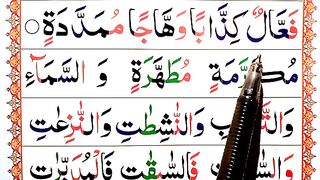 فَعَّالٌ كِذَّابًا وَهَّاجًا مُمَدَّدَةٍ
مُكَرَّمَةٍ مُطَهَّرَةٍ وَ السَّمَآءِ
وَالنّٰشِطٰتِ وَالنّٰزِعٰتِ
فَالسّٰبِقٰتِ فَالْمُدَبِّرٰتِ